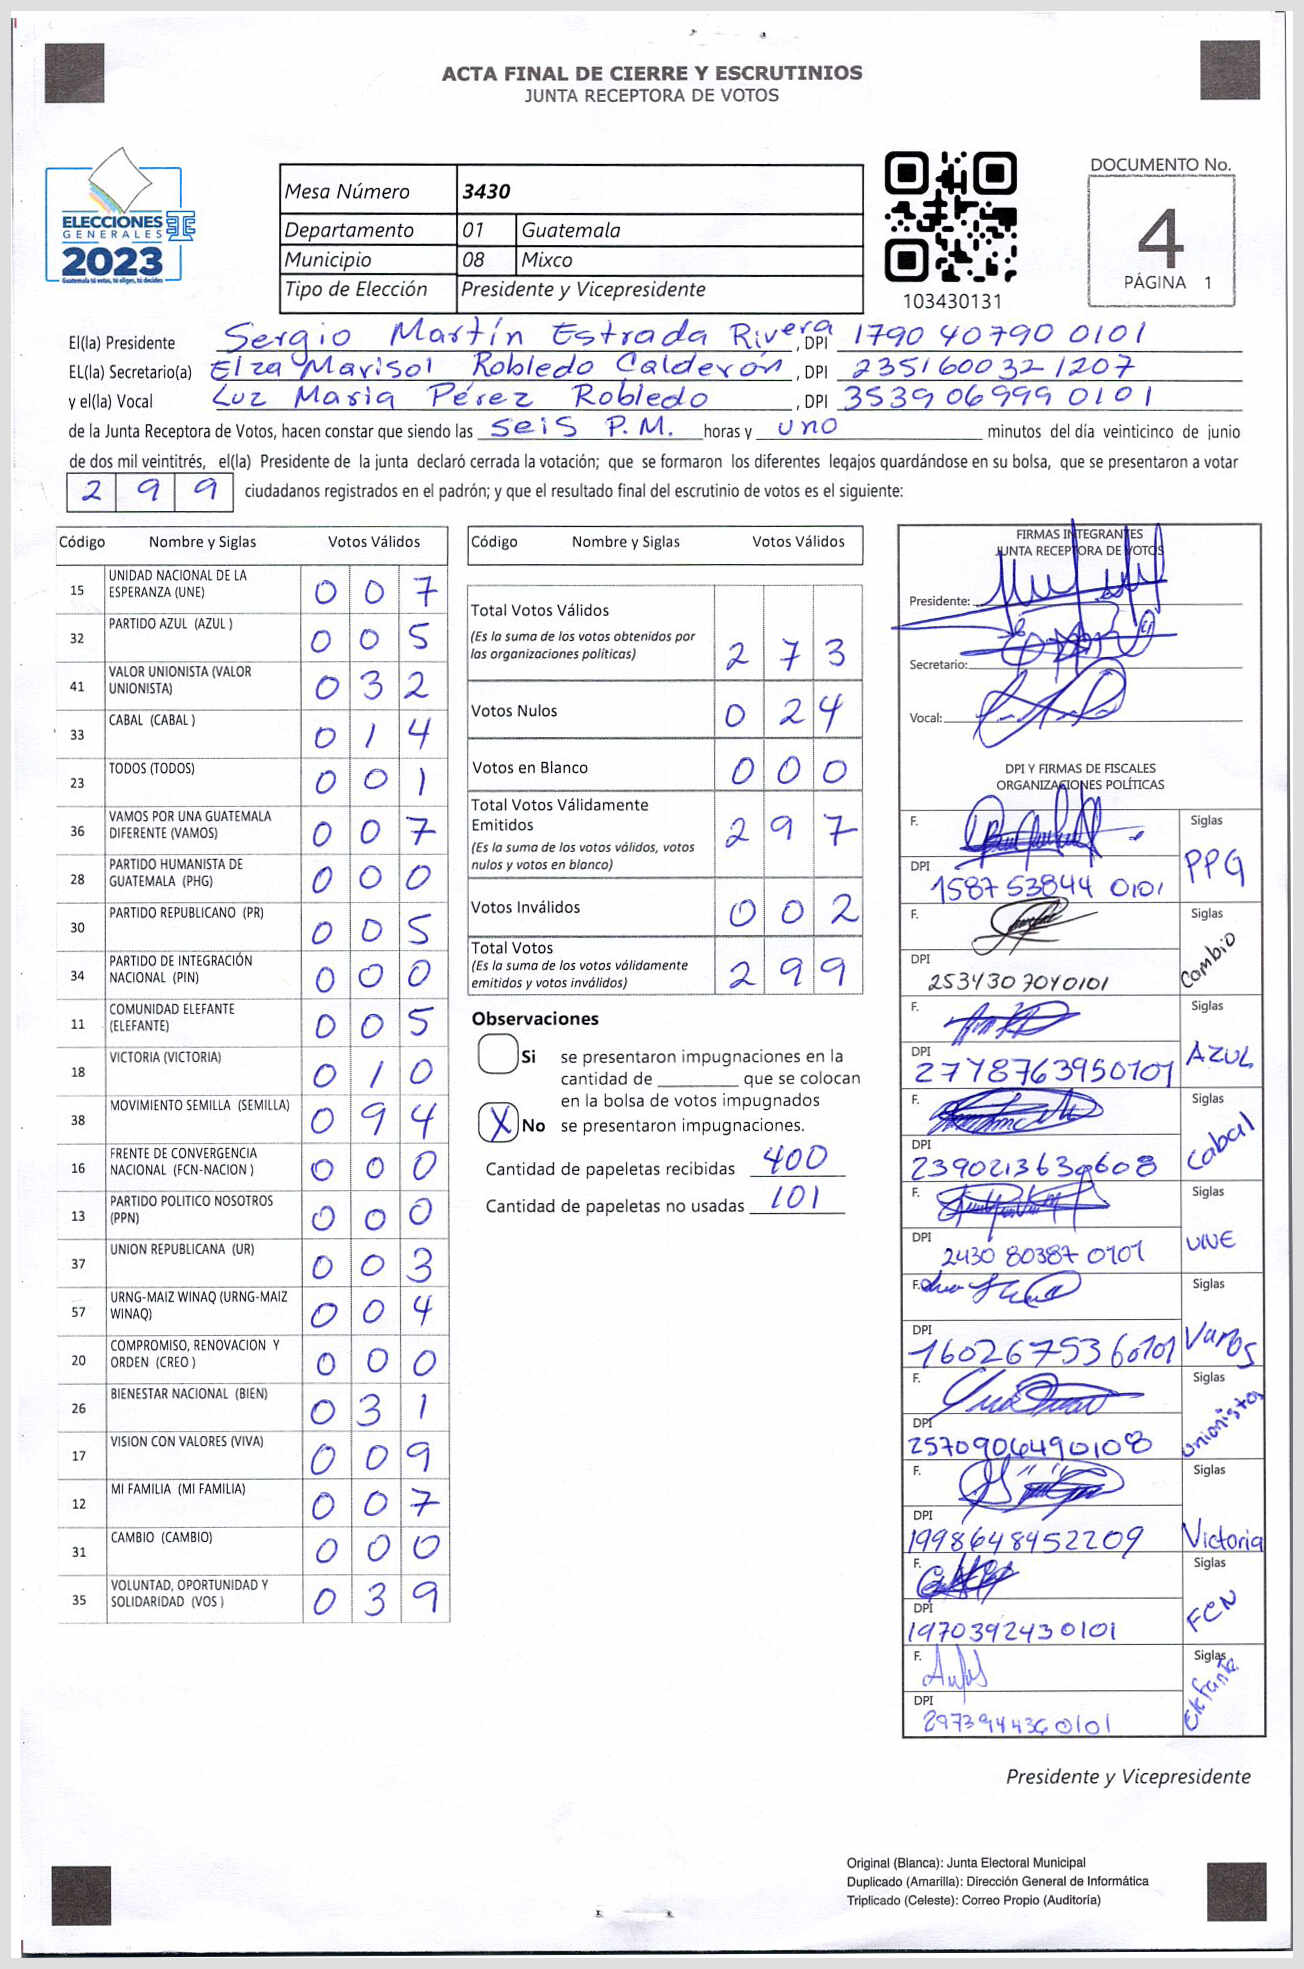 ACTA FINAL DE CIERRE Y ESCRUTINIOS
JUNTA RECEPTORA DE VOTOS
ELECCIONES
GENERALES
2023
Guatemala tú votas, tú eliges, tú decides
Mesa Número 3430
Departamento 01 Guatemala
Municipio 08 Mixco
Tipo de Elección Presidente y Vicepresidente
103430131
DOCUMENTO No.
4
PÁGINA 1
El(la) Presidente Sergio Martín Estrada Rivera, DPI 1790 40790 0101
EL(la) Secretario(a) Elza Marisol Robledo Calderón, DPI 2351600321207
y el(la) Vocal Luz Maria Pérez Robledo, DPI 3539 06999 0101
de la Junta Receptora de Votos, hacen constar que siendo las seis P.M. horas y uno minutos del día veinticinco de junio
de dos mil veintitrés, el(la) Presidente de la junta declaró cerrada la votación; que se formaron los diferentes legajos quardándose en su bolsa, que se presentaron a votar
2 9 9 ciudadanos registrados en el padrón; y que el resultado final del escrutinio de votos es el siguiente:
Código Nombre y Siglas Votos Válidos
15 UNIDAD NACIONAL DE LA ESPERANZA (UNE) 0 0 7
32 PARTIDO AZUL (AZUL ) 0 0 5
41 VALOR UNIONISTA (VALOR UNIONISTA) 0 3 2
33 CABAL (CABAL ) 0 1 4
23 TODOS (TODOS) 0 0 1
36 VAMOS POR UNA GUATEMALA DIFERENTE (VAMOS) 0 0 7
28 PARTIDO HUMANISTA DE GUATEMALA (PHG) 0 0 0
30 PARTIDO REPUBLICANO (PR) 0 0 5
34 PARTIDO DE INTEGRACIÓN NACIONAL (PIN) 0 0 0
11 COMUNIDAD ELEFANTE (ELEFANTE) 0 0 5
18 VICTORIA (VICTORIA) 0 1 0
38 MOVIMIENTO SEMILLA (SEMILLA) 0 9 4
16 FRENTE DE CONVERGENCIA NACIONAL (FCN-NACION ) 0 0 0
13 PARTIDO POLITICO NOSOTROS (PPN) 0 0 0
37 UNION REPUBLICANA (UR) 0 0 3
57 URNG-MAIZ WINAQ (URNG-MAIZ WINAQ) 0 0 4
20 COMPROMISO, RENOVACION Y ORDEN (CREO ) 0 0 0
26 BIENESTAR NACIONAL (BIEN) 0 3 1
17 VISION CON VALORES (VIVA) 0 0 9
12 MI FAMILIA (MI FAMILIA) 0 0 7
31 CAMBIO (CAMBIO) 0 0 0
35 VOLUNTAD, OPORTUNIDAD Y SOLIDARIDAD (VOS ) 0 3 9
Código Nombre y Siglas Votos Válidos
Total Votos Válidos
(Es la suma de los votos obtenidos por las organizaciones políticas) 2 7 3
Votos Nulos 0 2 4
Votos en Blanco 0 0 0
Total Votos Válidamente Emitidos
(Es la suma de los votos válidos, votos nulos y votos en blanco) 2 9 7
Votos Inválidos 0 0 2
Total Votos
(Es la suma de los votos válidamente emitidos y votos inválidos) 2 9 9
Observaciones
Si se presentaron impugnaciones en la
cantidad de ________ que se colocan
en la bolsa de votos impugnados
X No se presentaron impugnaciones.
Cantidad de papeletas recibidas 400
Cantidad de papeletas no usadas 101
FIRMAS INTEGRANTES
JUNTA RECEPTORA DE VOTOS
Presidente:
Secretario:
Vocal:
DPI Y FIRMAS DE FISCALES
ORGANIZACIONES POLÍTICAS
F. Siglas PPG
DPI 1587 53844 0101
F. Siglas Cambio
DPI 2534307040101
F. Siglas AZUL
DPI 2778763950101
F. Siglas Cabal
DPI 2390213630608
F. Siglas UNE
DPI 2430 80387 0101
F. Siglas Vamos
DPI 1602675360101
F. Siglas Unionista
DPI 2570906490108
F. Siglas Victoria
DPI 1998648452209
F. Siglas FCN
DPI 1970392430101
F. Siglas Elefante
DPI 2973944360101
Presidente y Vicepresidente
Original (Blanca): Junta Electoral Municipal
Duplicado (Amarilla): Dirección General de Informática
Triplicado (Celeste): Correo Propio (Auditoría)